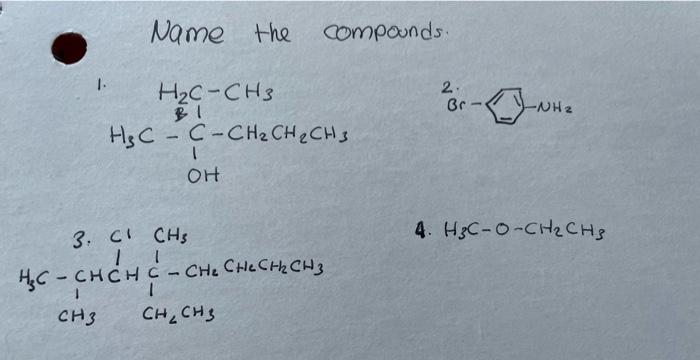 Name the compounds.
1.
H2C-CH3
H3C - C - CH2CH2CH3
OH
2.
Br- -NH2
3. Cl CH3
H3C - CHCH C - CH2CH2CH2CH3
CH3 CH2CH3
4. H3C-O-CH2CH3